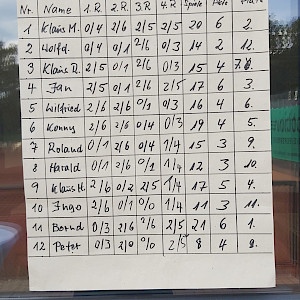 Nr. Name 1.R. 2.R. 3.R 4.R Spiele Pkte Platz
1 Klaus M. 0/4 2/6 2/5 2/5 20 6 2.
2 Wolfd. 0/4 0/1 2/6 0/3 14 2 12.
3 Klaus R. 2/5 0/1 2/6 0/3 15 4
4 Jan 2/5 0/2 1/6 2/5 17 6 3.
5 Wilfried 2/6 2/6 0/1 0/3 16 4 6.
6 Konny 2/6 2/6 0/4 0/3 19 4 5.
7 Roland 0/1 2/6 0/4 1/4 15 3 9.
8 Harald 0/1 2/6 0/1 1/4 12 3 10.
9 Klaus H. 2/6 0/2 2/5 1/4 17 5 4.
10 Ingo 2/6 0/1 0/0 1/4 11 3 11.
11 Bernd 0/3 2/6 2/6 2/5 21 6 1.
12 Peter 0/3 2/0 0/0 2/5 8 4 8.